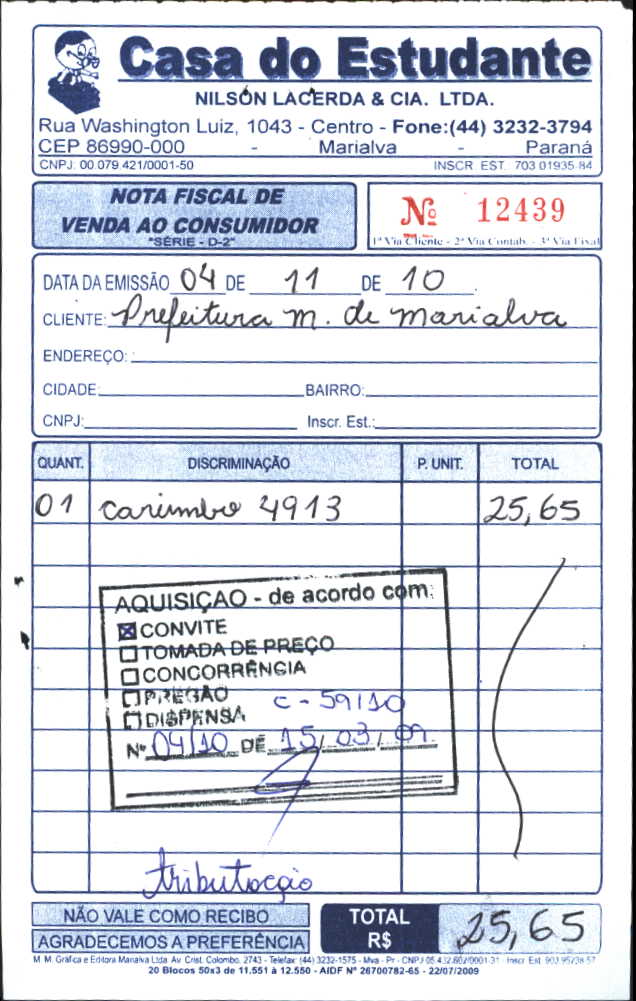 Casa do Estudante
NILSON LACERDA & CIA. LTDA.
Rua Washington Luiz, 1043 - Centro - Fone:(44) 3232-3794
CEP 86990-000 - Marialva - Paraná
CNPJ: 00.079.421/0001-50 INSCR. EST. 703.01935-84
NOTA FISCAL DE
VENDA AO CONSUMIDOR
"SÉRIE - D-2"
Nº 12439
1ª Via Cliente - 2ª Via Contab. - 3ª Via Fixa
DATA DA EMISSÃO 04 DE 11 DE 10
CLIENTE: Prefeitura m. de marialva
ENDEREÇO:
CIDADE: BAIRRO:
CNPJ: Inscr. Est.:
QUANT. DISCRIMINAÇÃO P. UNIT. TOTAL
01 carimbo 4913 25,65
AQUISIÇAO - de acordo com:
CONVITE
TOMADA DE PREÇO
CONCORRÊNCIA
PREGÃO
C - 59/10
DISPENSA
Nº 04/10 DE 15/03/09
tributação
NÃO VALE COMO RECIBO
AGRADECEMOS A PREFERÊNCIA
TOTAL R$ 25,65
M. M. Gráfica e Editora Marialva Ltda. Av. Crist. Colombo, 2743 - Telefax: (44) 3232-1575 - Mva - Pr - CNPJ
20 Blocos 50x3 de 11.551 à 12.550 - AIDF Nº 26700782-65 - 22/07/2009